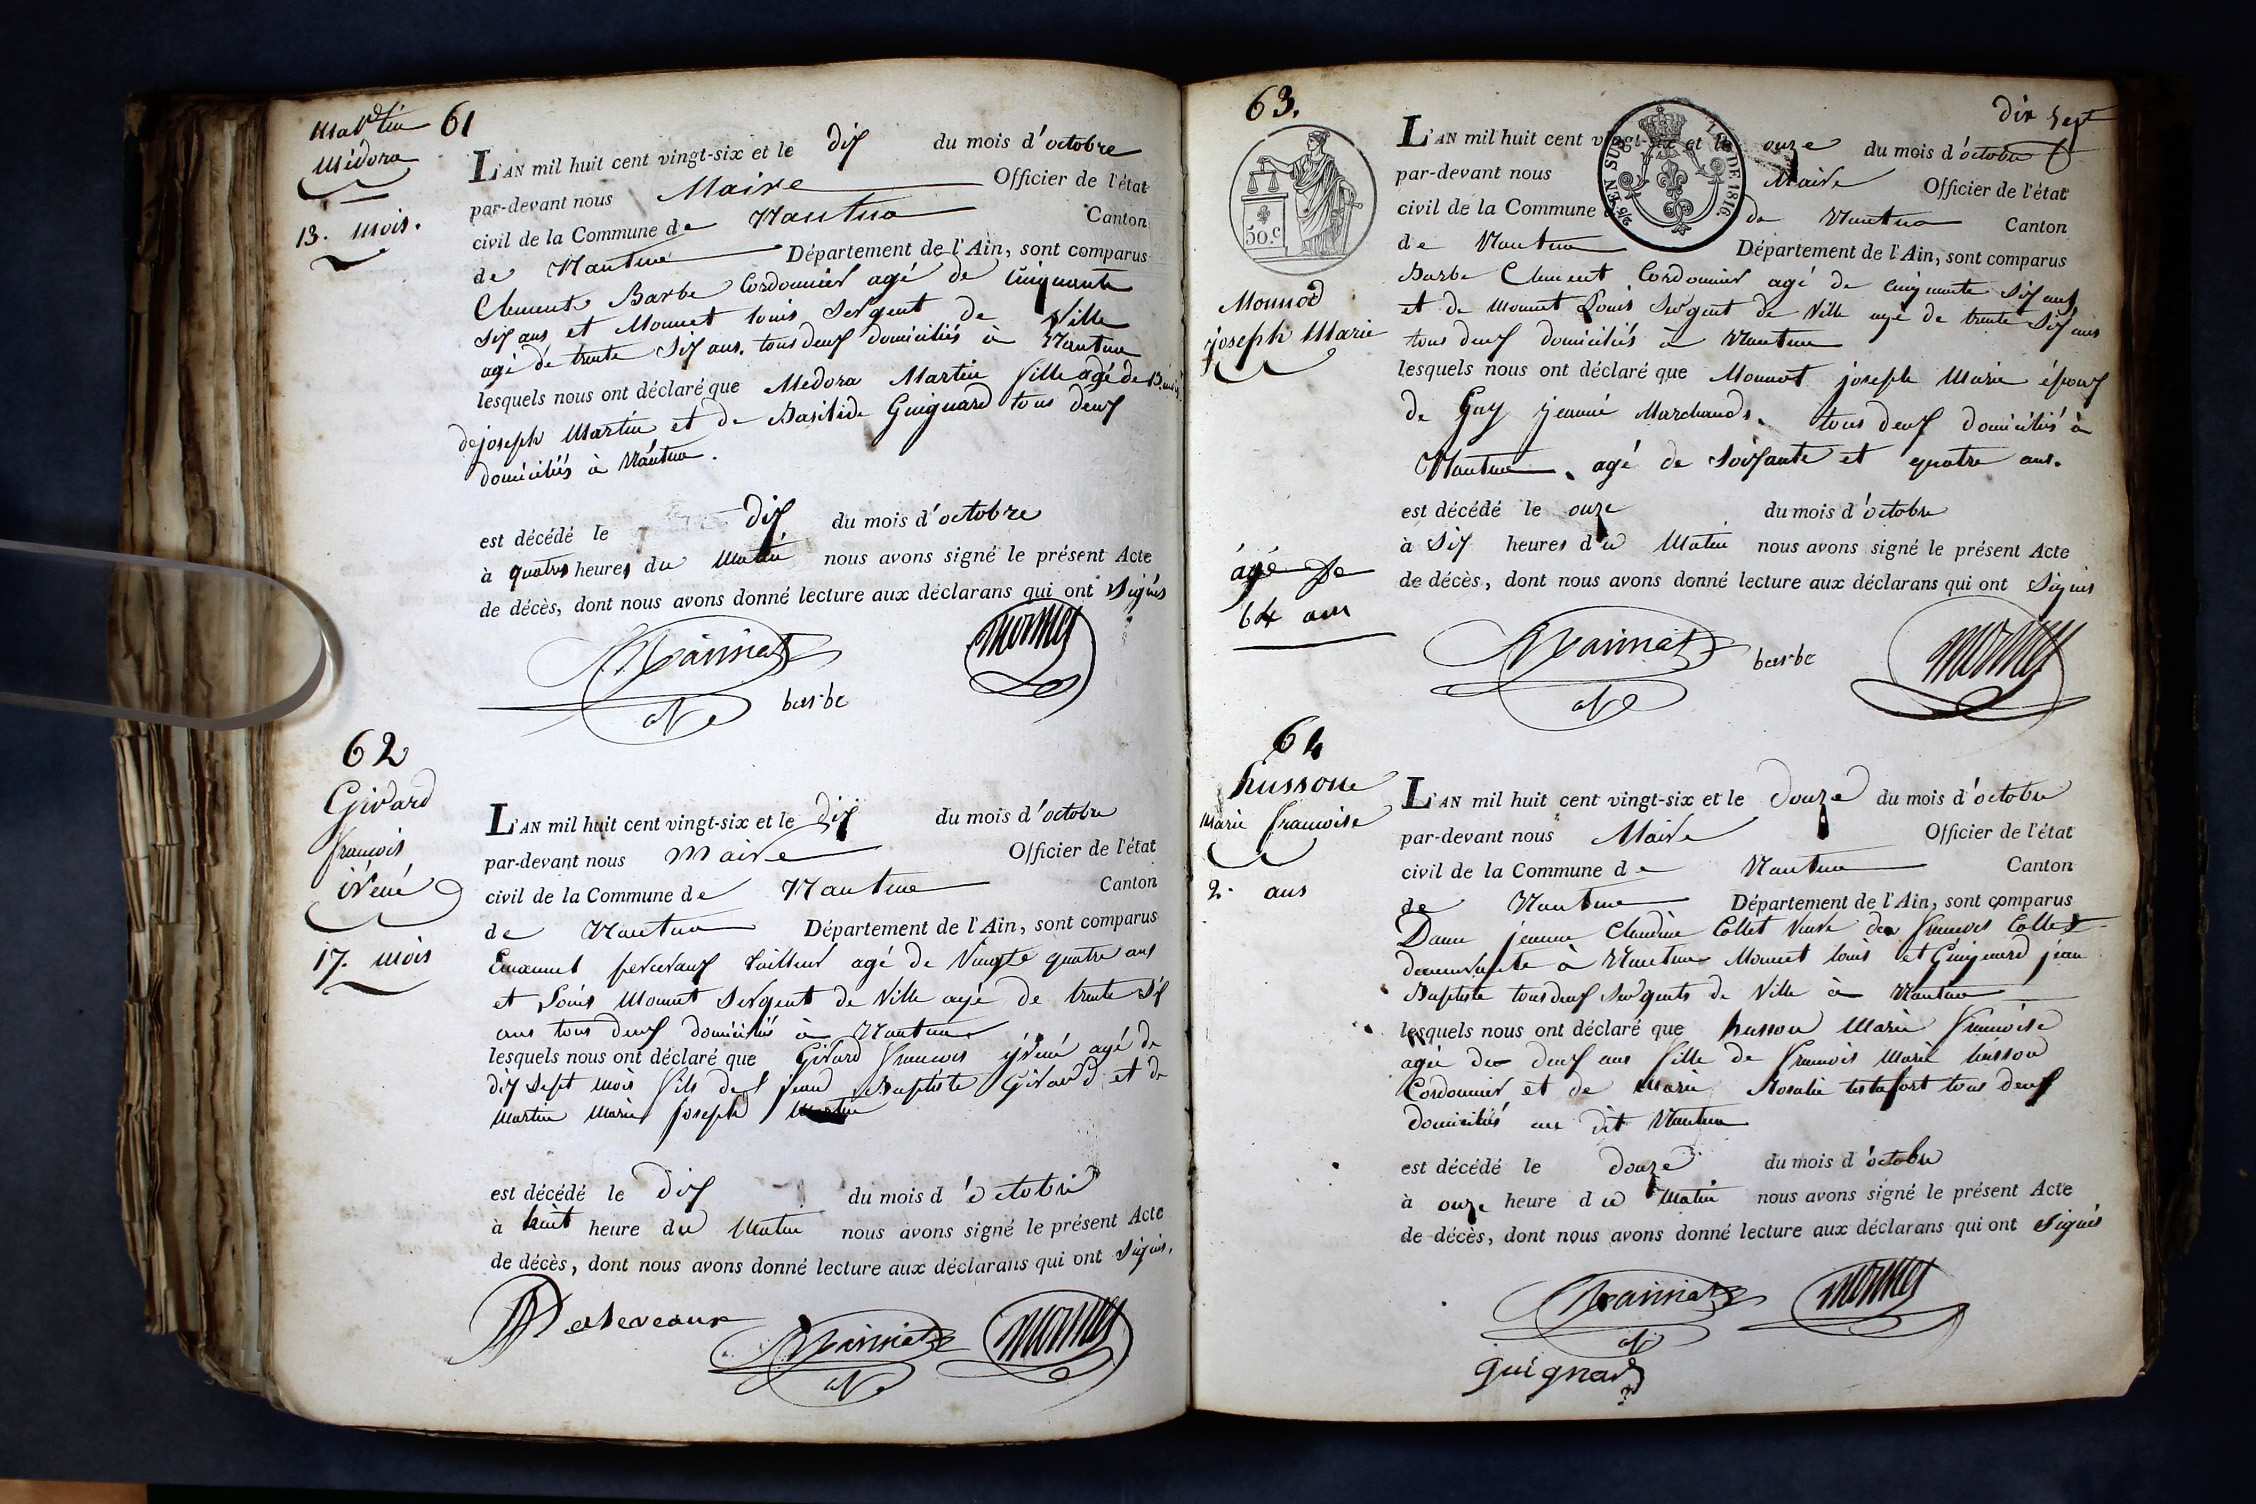 Martin 61
Médora
13. mois.
L'AN mil huit cent vingt-six et le dix du mois d'octobre
par-devant nous Maire Officier de l'état
civil de la Commune de Nantua Canton
de Nantua Département de l'Ain, sont comparus
Clement Barbe Cordonnier agé de Cinquante
six ans et Monnet louis Sergent de Ville
agé de trente Six ans. tous deux domiciliés à Nantua
lesquels nous ont déclaré que Medora Martin fille agé de 13 mois
de joseph Martin et de Basilide Guignard tous deux
domiciliés à Nantua.
est décédé le dix du mois d'octobre
à quatre heures du Matin nous avons signé le présent Acte
de décès, dont nous avons donné lecture aux déclarans qui ont Signés
barbe
62
Girard
francois
iréné
17. mois
L'AN mil huit cent vingt-six et le dix du mois d'octobre
par-devant nous Maire Officier de l'état
civil de la Commune de Nantua Canton
de Nantua Département de l'Ain, sont comparus
Emanuel tailleur agé de Vingte quatre ans
et Louis Monnet Sergent de Ville agé de trente Six
ans tous deux domiciliés à Nantua
lesquels nous ont déclaré que Girard francois iréné agé de
dix Sept mois fils de jean Baptiste Girard et de
Martin Marie joseph
est décédé le dix du mois d'octobre
à huit heure du Matin nous avons signé le présent Acte
de décès, dont nous avons donné lecture aux déclarans qui ont Signés.
63. dix Sept
50.c
EN SUS
LOI DE 1816.
Monnod
joseph Marie
âgé de
64 ans
L'AN mil huit cent vingt-six et le onze du mois d'octobre
par-devant nous Maire Officier de l'état
civil de la Commune de Nantua Canton
de Nantua Département de l'Ain, sont comparus
Barbe Clement Cordonnier agé de cinquante Six ans
et de Monnet Louis Sergent de Ville agé de trente Six ans
tous deux domiciliés à Nantua
lesquels nous ont déclaré que Monnot joseph Marie époux
de Guy jeanne Marchands. tous deux domiciliés à
Nantua. agé de Soixante et quatre ans.
est décédé le onze du mois d'octobre
à Six heures du Matin nous avons signé le présent Acte
de décès, dont nous avons donné lecture aux déclarans qui ont Signés
barbe
64
husson
Marie francoise
2. ans
L'AN mil huit cent vingt-six et le douze du mois d'octobre
par-devant nous Maire Officier de l'état
civil de la Commune de Nantua Canton
de Nantua Département de l'Ain, sont comparus
Dame jeanne Claudine Collet Veuve de francois Collet
demeurante à Nantua Monnet louis et Guignard jean
Baptiste tous deux Sergents de Ville à Nantua
lesquels nous ont déclaré que husson Marie francoise
agée de deux ans fille de francois Marie husson
Cordonnier et de Marie Rosalie tous deux
domiciliés au dit Nantua
est décédé le douze du mois d'octobre
à onze heure du Matin nous avons signé le présent Acte
de décès, dont nous avons donné lecture aux déclarans qui ont Signés
guignard